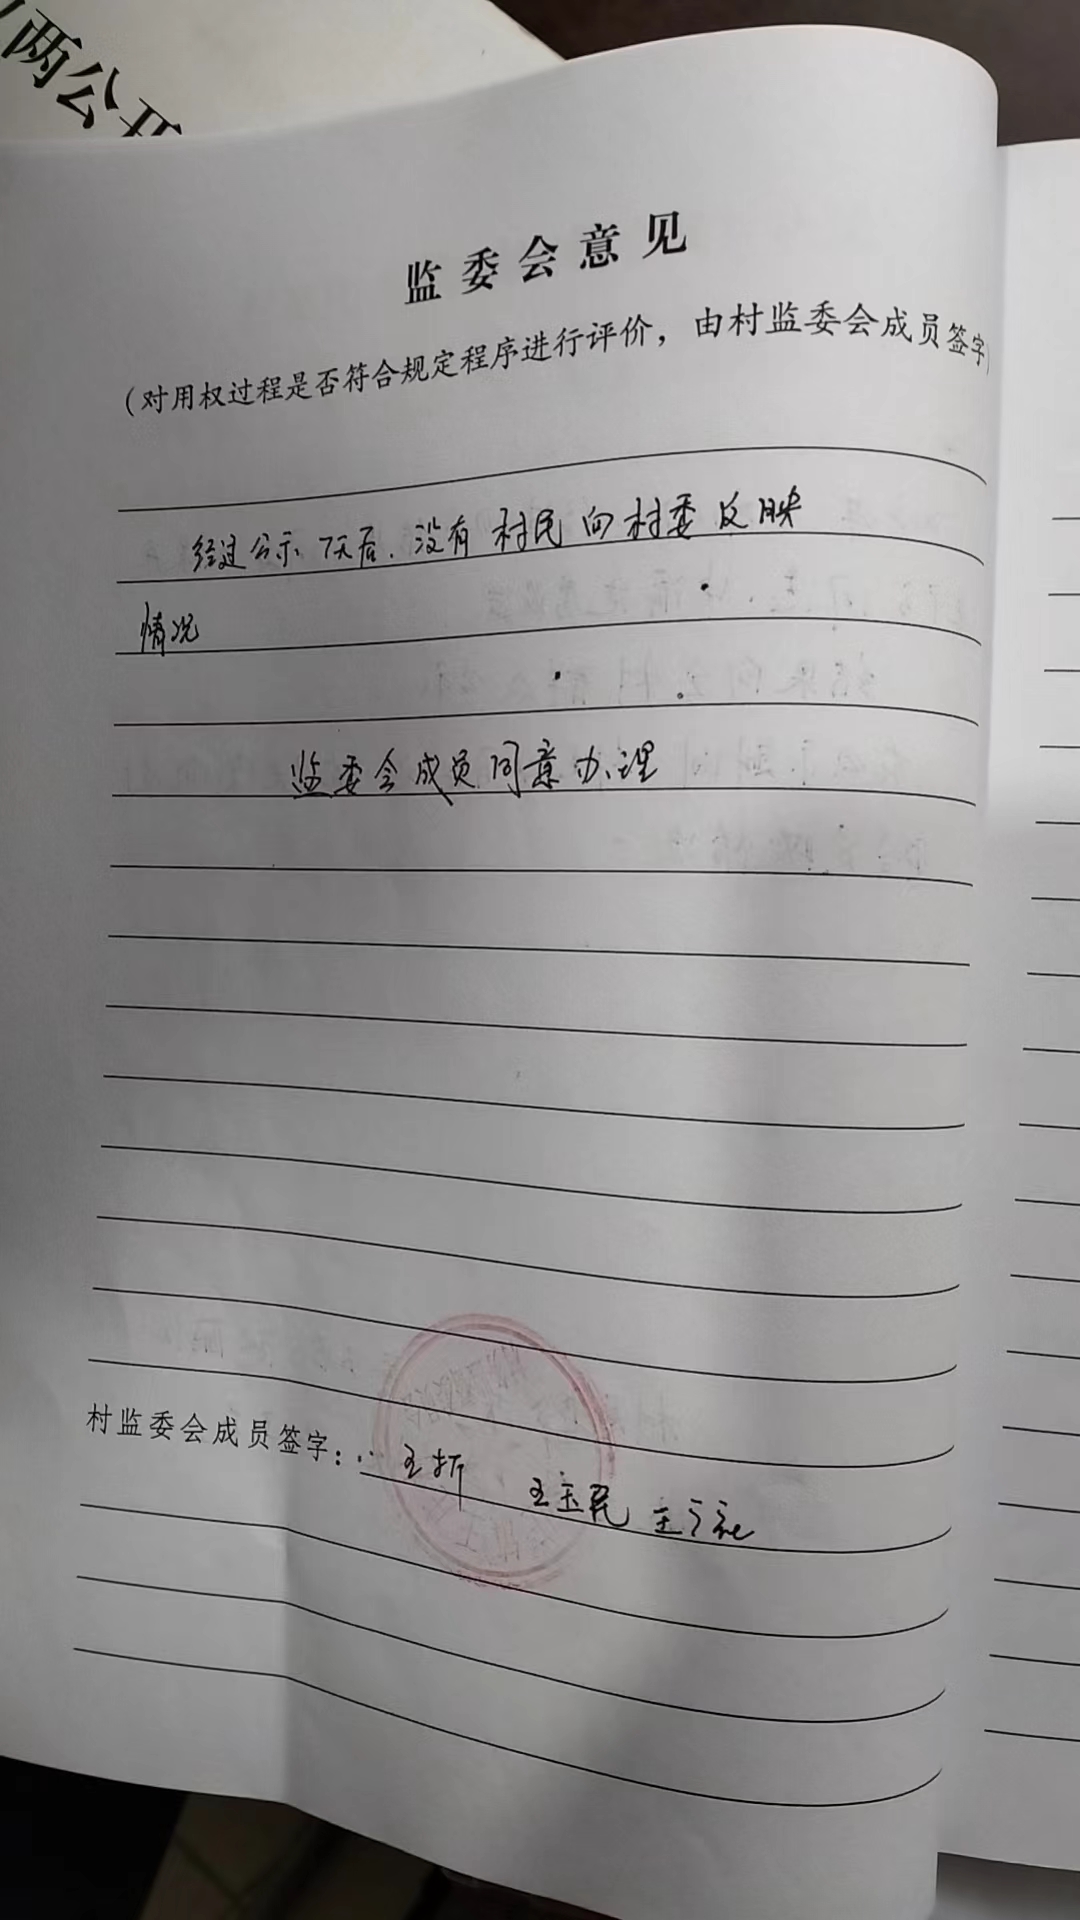 两公开
监委会意见
（对用权过程是否符合规定程序进行评价，由村监委会成员签字）
经过公示7天后.没有村民向村委反映
情况
监委会成员同意办理
村监委会成员签字：
王折 王玉民